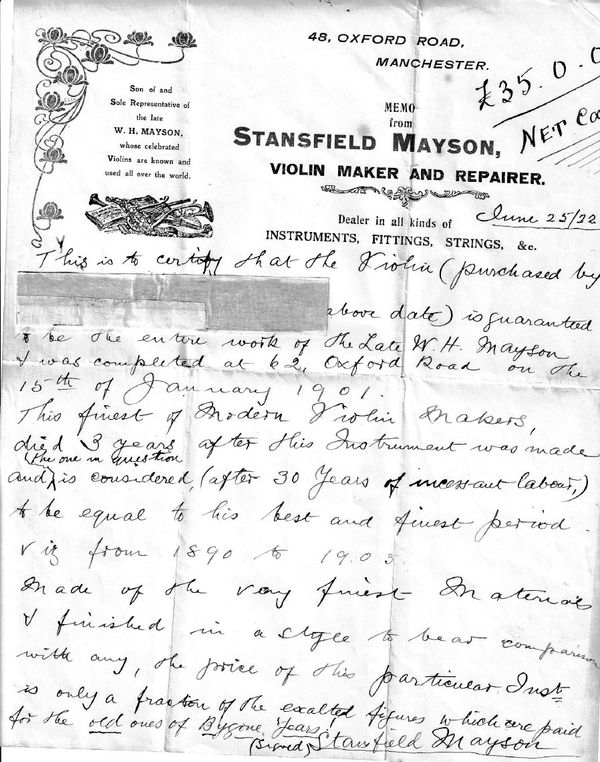 48, OXFORD ROAD,
MANCHESTER.
£35.0.0
NET
Son of and
Sole Representative of
the late
W. H. MAYSON,
whose celebrated
Violins are known and
used all over the world.
MEMO
from
STANSFIELD MAYSON,
VIOLIN MAKER AND REPAIRER.
Dealer in all kinds of
INSTRUMENTS, FITTINGS, STRINGS, &c.
June 25/22
This is to certify that the Violin (purchased by
above date) is guaranteed
to be the entire work of the Late W. H. Mayson
& was completed at 62, Oxford Road on the
15th of January 1901.
This finest of Modern Violin Makers,
died 3 years after this Instrument was made
and (the one in question) is considered, (after 30 Years of incessant labour,)
to be equal to his best and finest period.
viz from 1890 to 1903
Made of the very finest Materials
& finished in a style to bear comparison
with any, the price of this particular Inst
is only a fraction of the exalted figures which are paid
for the old ones of Bygone Years!
(Signed) Stansfield Mayson